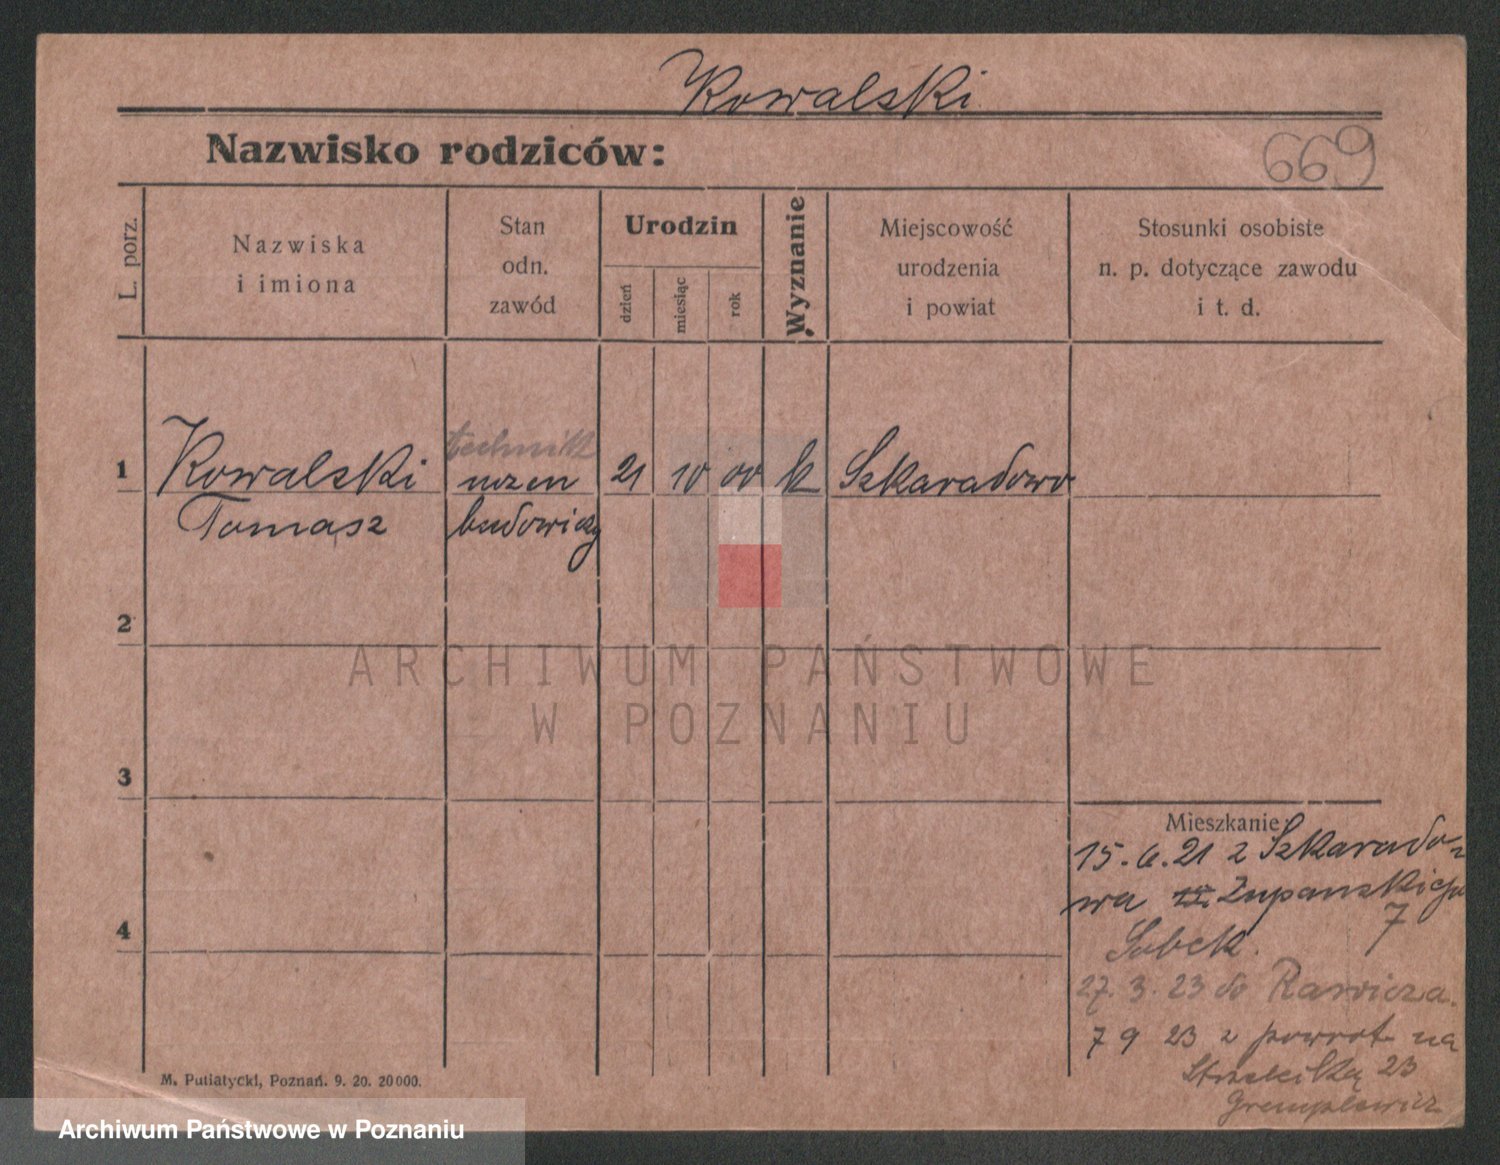 Kowalski
Nazwisko rodziców:
669
L. porz.
Nazwiska
i imiona
Stan
odn.
zawód
Urodzin
dzień
miesiąc
rok
Wyznanie
Miejscowość
urodzenia
i powiat
Stosunki osobiste
n. p. dotyczące zawodu
i t. d.
technik
1 Kowalski uczen 21 10 00 k Szkaradowo
Tomasz budowiczy
2
3
4
Mieszkanie:
15. 6. 21 z Szkarado-
wa Zupanskiego
7
Sobek.
27. 3. 23 do Rawicza.
7 9 23 z powrot na
Strzelecką 23
M. Putiatycki, Poznań. 9. 20. 20000.
ARCHIWUM PAŃSTWOWE
W POZNANIU
Archiwum Państwowe w Poznaniu